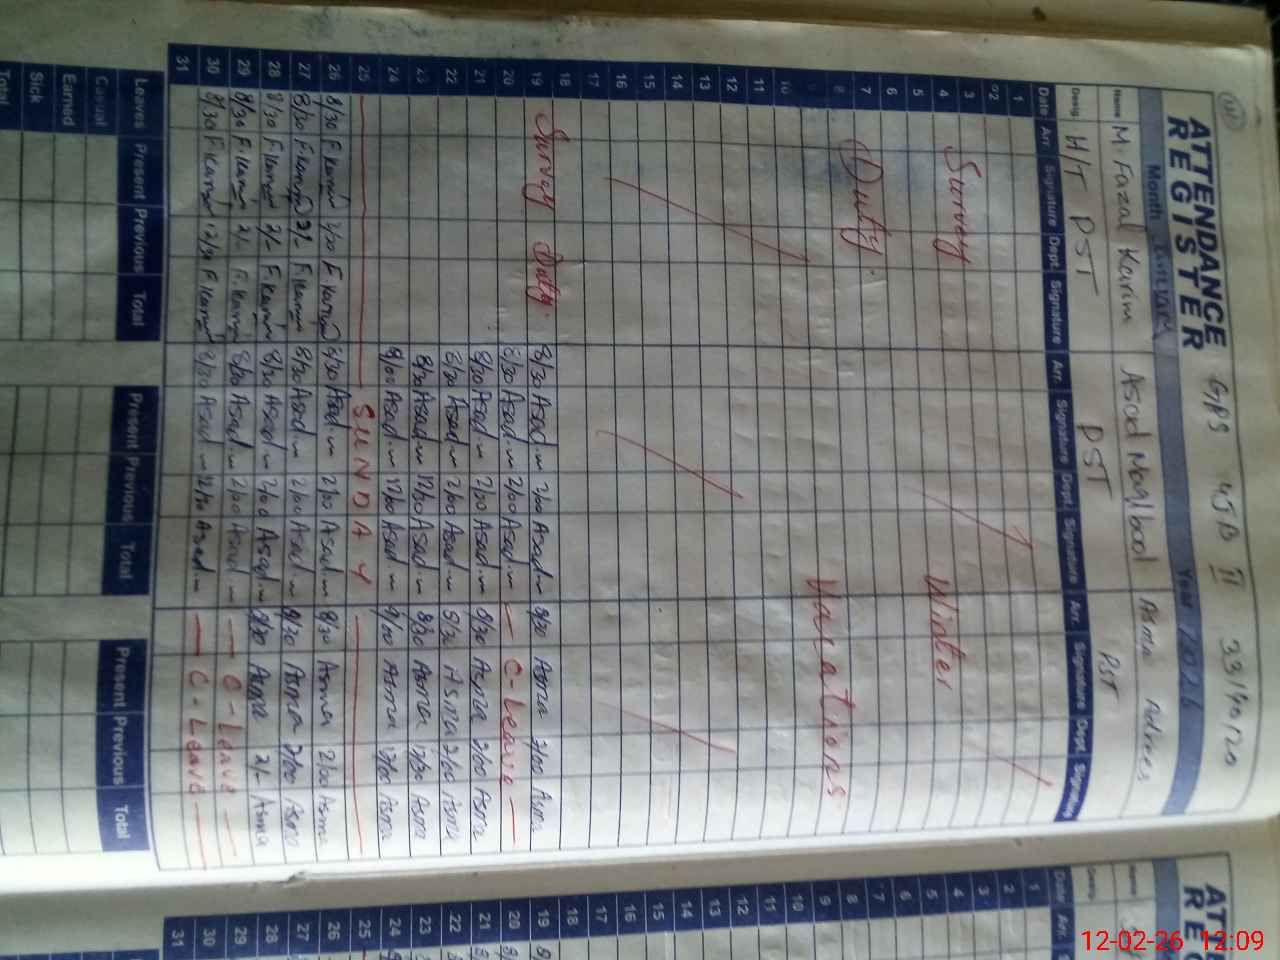 ATTENDANCE REGISTER
GPS 45B II 33140120
Month January Year 2026
Name M. Fazal Karim Asad Maqbool Asma
Desig. H/T PST PST PST
Date Arr. Signature Dept. Signature Arr. Signature Dept. Signature Arr. Signature Dept. Signature
1
2
3
4 Survey Winter
5
6
7 Duty
8 Vacations
9
10
11
12
13
14
15
16
17
18
19 Survey Duty. 8/30 Asad 2/00 Asad 8/30 Asma 2/00 Asma
20 8/30 Asad 2/00 Asad C-Leave
21 8/30 Asad 2/00 Asad 8/30 Asma 2/00 Asma
22 8/30 Asad 2/00 Asad 8/30 Asma 2/00 Asma
23 8/30 Asad 12/30 Asad 8/30 Asma 12/30 Asma
24 9/00 Asad Asad 9/00 Asma Asma
25 SUNDAY
26 8/30 F.Karim 2/00 F.Karim 8/30 Asad 2/00 Asad 8/30 Asma 2/00 Asma
27 8/30 F.Karim 2/- F.Karim 8/30 Asad 2/00 Asad 8/30 Asma 2/00 Asma
28 8/30 F.Karim 2/- F.Karim 8/30 Asad 2/00 Asad 8/30 Asma 2/- Asma
29 8/30 F.Karim 2/- F.Karim 8/30 Asad 2/00 Asad C-Leave
30 8/30 F.Karim 12/30 F.Karim 8/30 Asad 12/30 Asad C-Leave
31
Leaves Present Previous Total Present Previous Total Present Previous Total
Casual
Earned
Sick
Total
ATTE
RE
Date Arr.
1
2
3
4
5
6
7
8
9
10
11
12
13
14
15
16
17
18
19
20
21
22
23
24
25
26
27
28
29
30
31
12-02-26 12:09